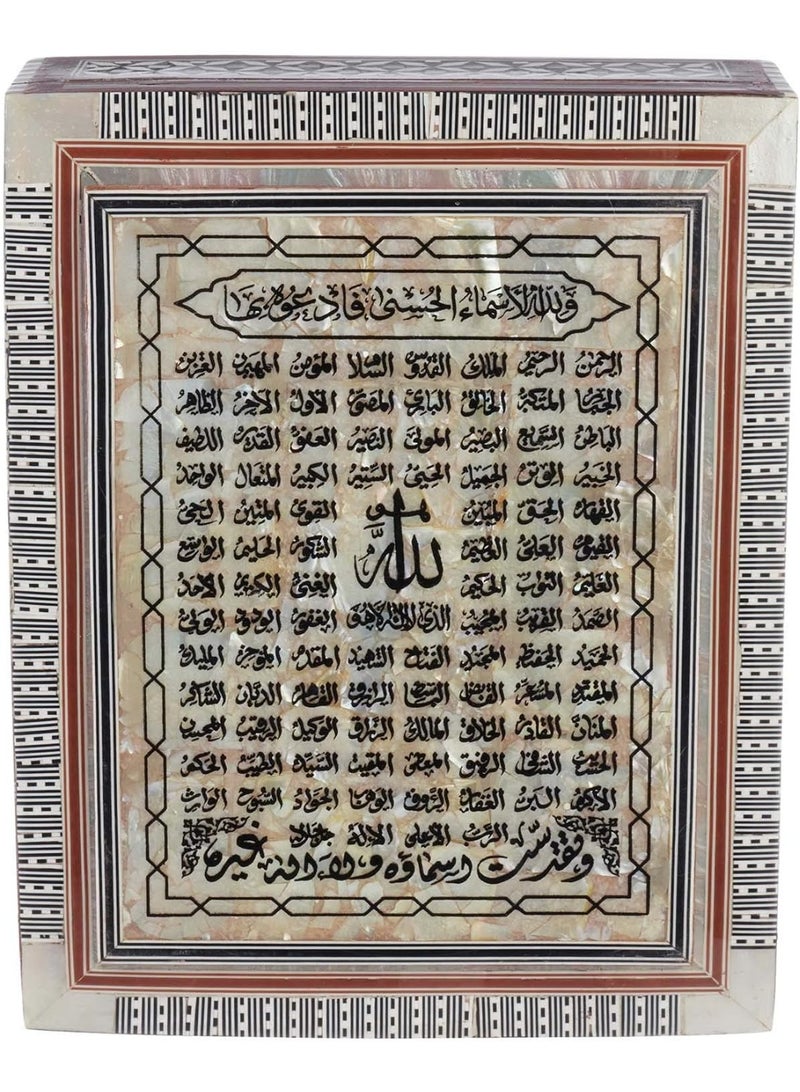 ولله الاسماء الحسنى فادعوه بها
الرحمن الرحيم الملك القدوس السلام المؤمن المهيمن العزيز
الجبار المتكبر الخالق البارئ المصور الأول الآخر الظاهر
الباطن السميع البصير المولى النصير العفو القدير اللطيف
الخبير الوتر الجميل الحيي الستير الكبير المتعال الواحد
القهار الحق المبين القوي المتين الحي
الله
القيوم العلي العظيم الشكور الحليم الواسع
العليم التواب الحكيم الغني الكريم الأحد
الصمد القريب المجيب الذي لا إله إلا هو الغفور الودود الولي
الحميد الحفيظ المجيد الفتاح الشهيد المقدم المؤخر المليك
المقتدر المسعر القابض الباسط الرازق القاهر الديان الشاكر
المنان القادر الخلاق المالك الرزاق الوكيل الرقيب المحسن
الحسيب الشافي الرفيق المعطي المقيت السيد الطيب الحكم
الأكرم البر الغفار الرءوف الوهاب الجواد السبوح الوارث
الرب الأعلى الإله جل جلاله
وتقدست اسماؤه ولا اله غيره